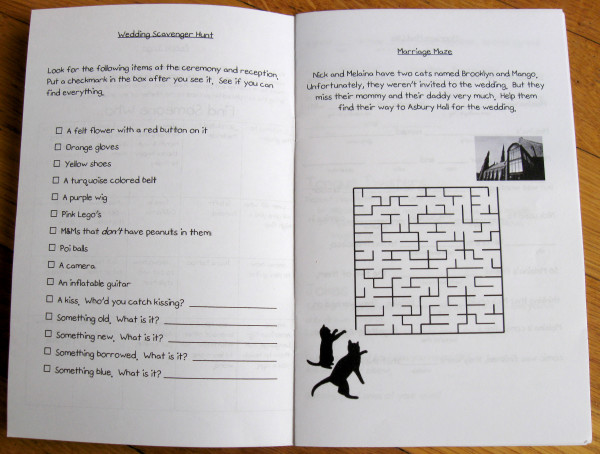 Wedding Scavenger Hunt
Look for the following items at the ceremony and reception.
Put a checkmark in the box after you see it. See if you can
find everything.
A felt flower with a red button on it
Orange gloves
Yellow shoes
A turquoise colored belt
A purple wig
Pink Lego's
M&Ms that don't have peanuts in them
Poi balls
A camera
An inflatable guitar
A kiss. Who'd you catch kissing?
Something old. What is it?
Something new. What is it?
Something borrowed. What is it?
Something blue. What is it?
Marriage Maze
Nick and Melaina have two cats named Brooklyn and Mango.
Unfortunately, they weren't invited to the wedding. But they
miss their mommy and their daddy very much. Help them
find their way to Asbury Hall for the wedding.